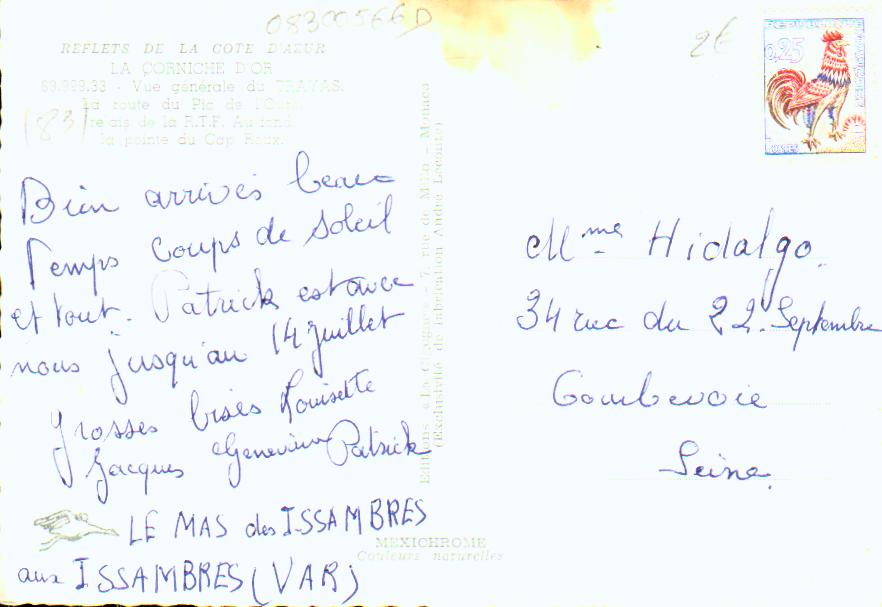 08300566D
2€
REFLETS DE LA COTE D'AZUR
LA CORNICHE D'OR
83.999.33 - Vue générale du TRAYAS.
La route du Pic de l'Ours,
relais de la R.T.F. Au fond
la pointe du Cap Roux.
(83)
REPUBLIQUE
0,25
POSTES
Bien arrivés beau
Temps Coups de Soleil
et tout. Patrick est avec
nous jusqu'au 14 juillet
grosses bises Louisette
Jacques Geneviève Patrick
LE MAS des ISSAMBRES
aux ISSAMBRES (VAR)
Editions «La Cigogne» - 7, rue de Millo - Monaco
(Exclusivité de fabrication André Leconte)
MEXICHROME
Couleurs naturelles
Mme Hidalgo.
34 rue du 22 Septembre
Courbevoie
Seine.